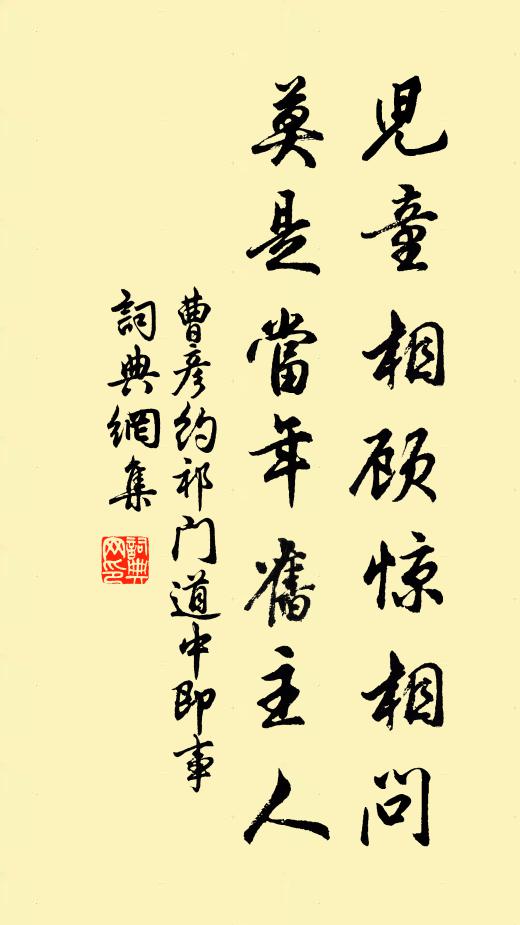 兒童相顾惊相问
莫是當年舊主人
曹彦约祁门道中即事
詞典網集
詞典网印